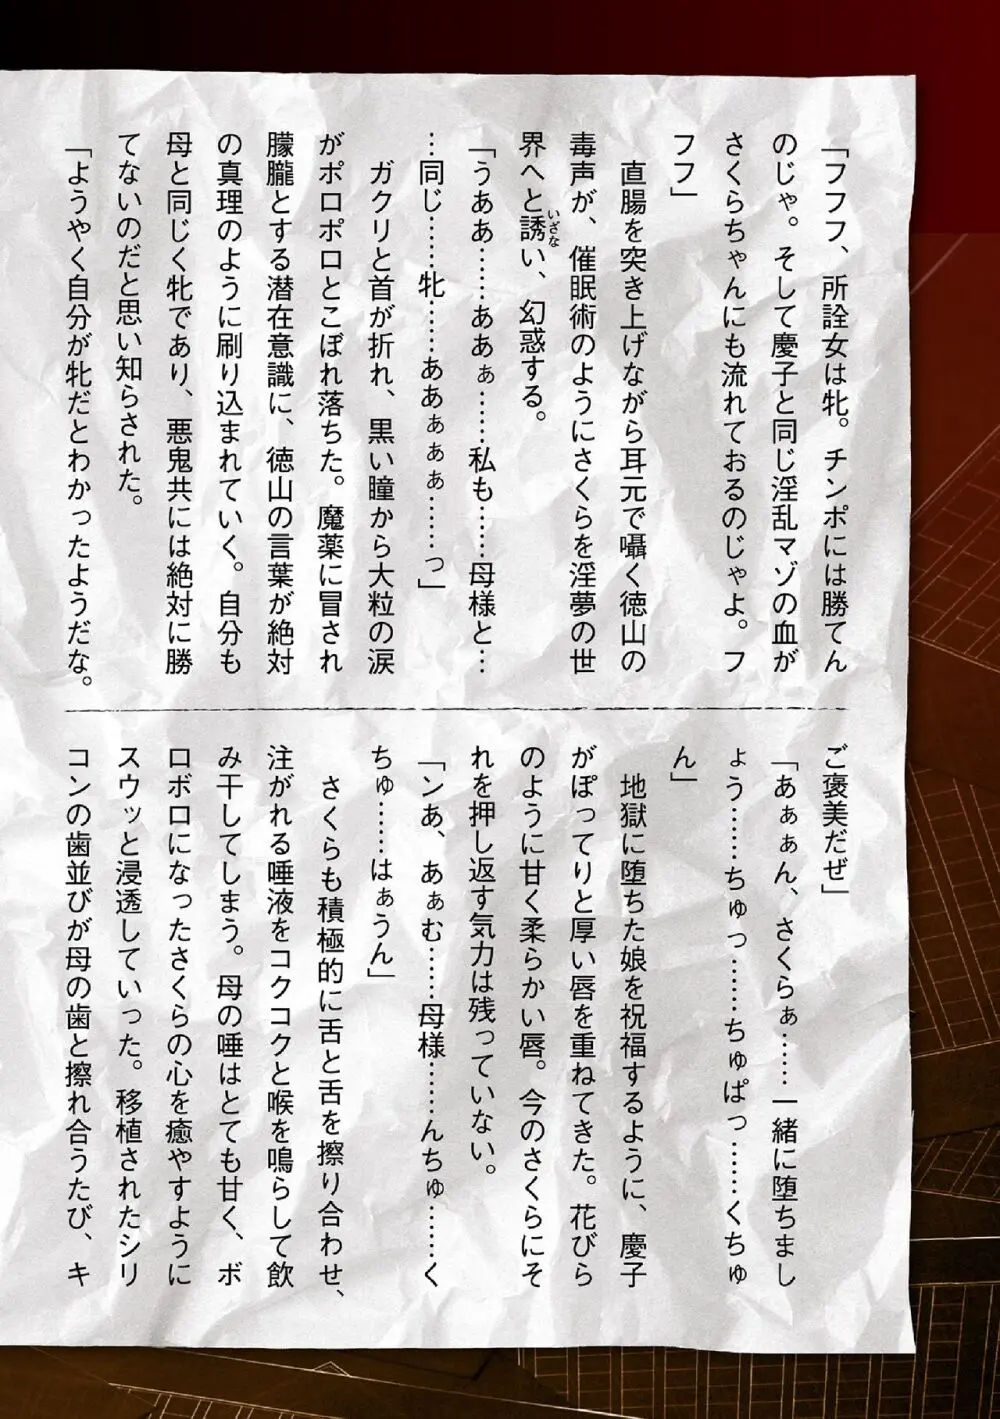 「フフフ、所詮女は牝。チンポには勝てん
のじゃ。そして慶子と同じ淫乱マゾの血が
さくらちゃんにも流れておるのじゃよ。フ
フフ」
　直腸を突き上げながら耳元で囁く徳山の
毒声が、催眠術のようにさくらを淫夢の世
界へと誘い、幻惑する。
いざな
「うああ……ああぁ……私も……母様と…
…同じ……牝……ああぁぁぁ……っ」
　ガクリと首が折れ、黒い瞳から大粒の涙
がポロポロとこぼれ落ちた。魔薬に冒され
朦朧とする潜在意識に、徳山の言葉が絶対
の真理のように刷り込まれていく。自分も
母と同じく牝であり、悪鬼共には絶対に勝
てないのだと思い知らされた。
「ようやく自分が牝だとわかったようだな。
ご褒美だぜ」
「あぁぁん、さくらぁ……一緒に堕ちまし
ょう……ちゅっ……ちゅぱっ……くちゅ
ん」
　地獄に堕ちた娘を祝福するように、慶子
がぽってりと厚い唇を重ねてきた。花びら
のように甘く柔らかい唇。今のさくらにそ
れを押し返す気力は残っていない。
「ンあ、あぁむ……母様……んちゅ……く
ちゅ……はぁうん」
　さくらも積極的に舌と舌を擦り合わせ、
注がれる唾液をコクコクと喉を鳴らして飲
み干してしまう。母の唾はとても甘く、ボ
ロボロになったさくらの心を癒やすように
スウッと浸透していった。移植されたシリ
コンの歯並びが母の歯と擦れ合うたび、キ